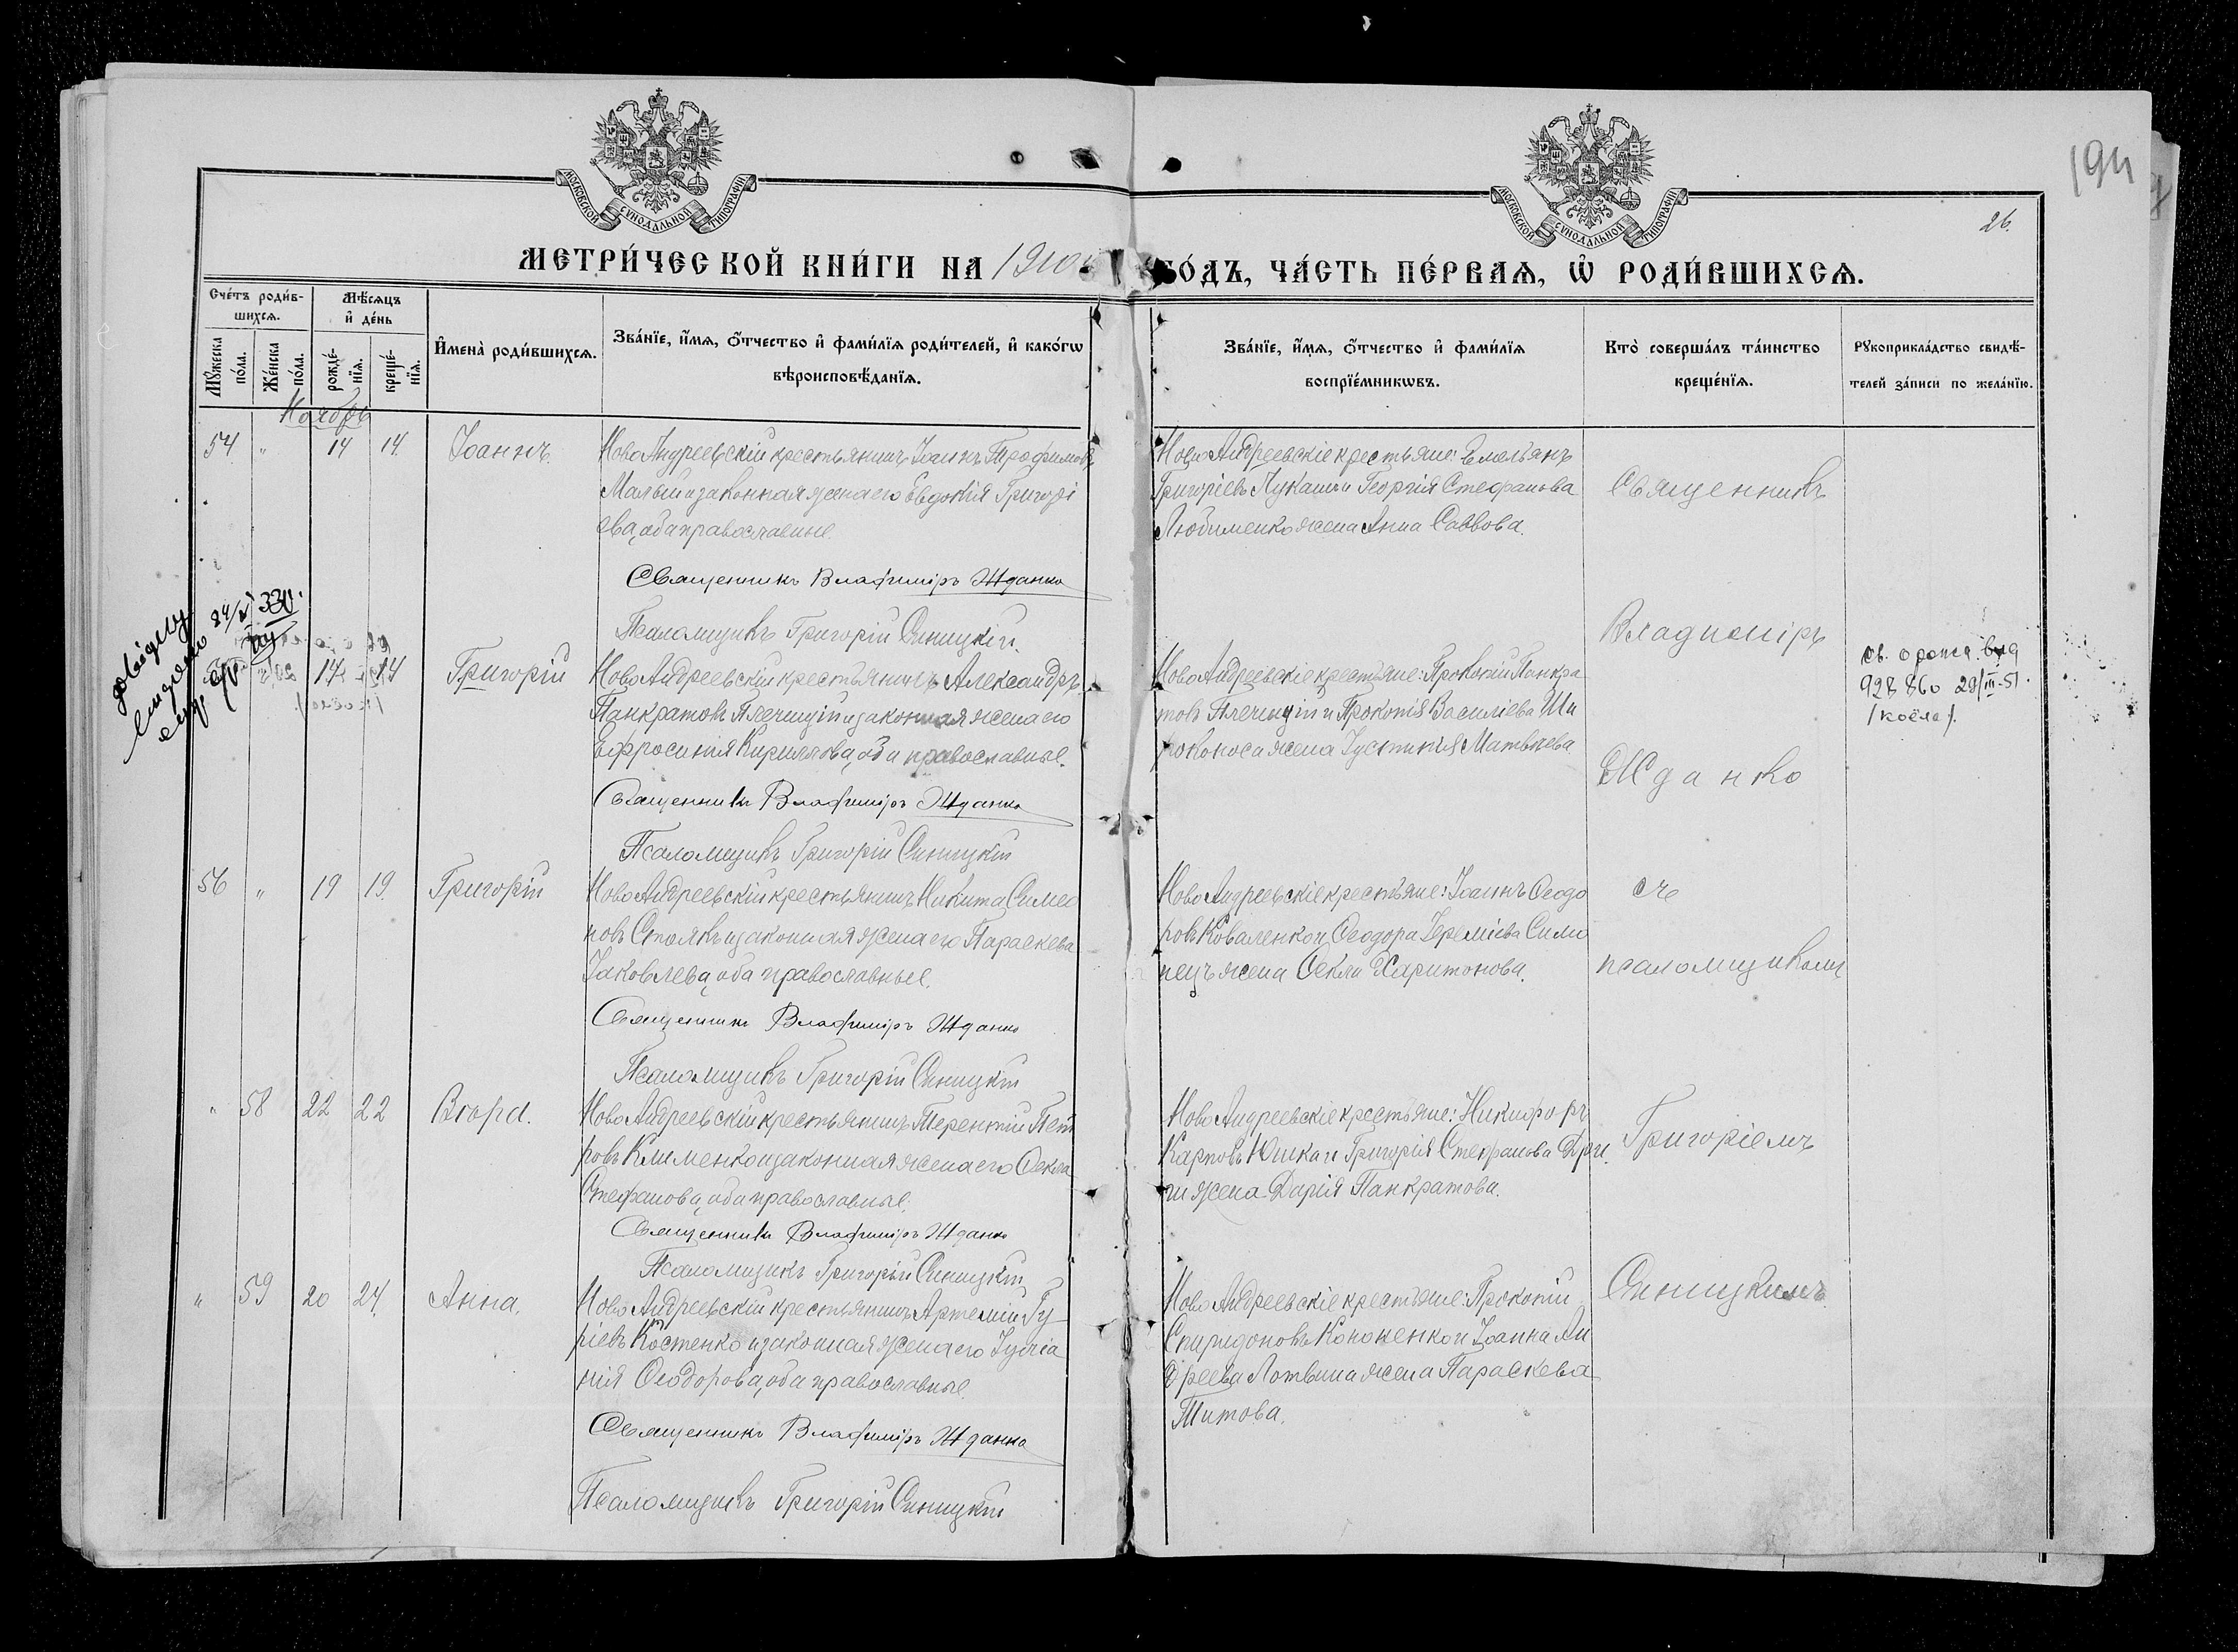 194
26.
МОСКОВСКОЙ СѴНОДАЛЬНОЙ ТИПОГРАФІИ
МОСКОВСКОЙ СѴНОДАЛЬНОЙ ТИПОГРАФІИ
МЕТРИ́ЧЕСКОЙ КНИ́ГИ НА 1910
ГО́ДЪ, ЧА́СТЬ ПЕ́РВАЯ, Ѿ РОДИ́ВШИХСЯ.
Сче́тъ роди́в-
шихся.
Мѣ́сяцъ
и҆ де́нь
Му́жеска
по́ла.
Же́нска
по́ла.
рожде́-
нїя.
креще́-
нїя.
И҆мена̀ роди́вшихся.
Зва́нїе, и҆́мя, о҆́тчество и҆ фами́лїя роди́телей, и҆ како́гѡ
вѣроисповѣ́данїя.
Зва́нїе, и҆́мя, о҆́тчество и҆ фами́лїя
воспрїе́мникѡвъ.
Кто̀ соверша́лъ та́инство
креще́нїя.
Рукоприкла́дство свидѣ́-
телей за́писи по жела́нїю.
Ноябрь
54 " 14 14. Іоаннъ.
Ново Андреевскій крестьянинъ Іоаннъ Трофимовъ
Малый и законная жена его Евдокія Григорі
ева, оба православные.
Священникъ Владиміръ Жданко
Псаломщикъ Григорій Синицкій.
Ново Андреевскіе крестьяне: Емельянъ
Григоріевъ Лукаш и Георгія Стефанова
Любименко жена Анна Саввова.
Священникъ
Владиміръ
Жданко
съ
псаломщикомъ
Григоріемъ
Синицкимъ.
330.
14 14 Григорій
Ново Андреевскій крестьянинъ Александръ
Панкратовъ Плечицій и законная жена его
Ефросинія Кириллова, оба православные.
Священникъ Владиміръ Жданко
Псаломщикъ Григорій Синицкій
Ново Андреевскіе крестьяне: Прокопій Панкра
товъ Плечицій и Прокопія Василіева Ши
роконоса жена Іустинія Матвѣева
св. о рожд. выд
928860 29/III-51.
56 " 19 19. Григорій
Ново Андреевскій крестьянинъ Никита Симео
новъ Столякъ и законная жена его Параскева
Іаковлева, оба православные.
Священникъ Владиміръ Жданко
Псаломщикъ Григорій Синицкій
Ново Андреевскіе крестьяне: Іоаннъ Ѳеодо
ровъ Коваленко и Ѳеодора Іереміева Симо
нецъ жена Ѳекла Харитонова.
" 58 22 22
Ново Андреевскій крестьянинъ Терентій Пет
ровъ Клименко и законная жена его Ѳекла
Стефанова, оба православные.
Священникъ Владиміръ Жданко
Псаломщикъ Григорій Синицкій
Ново Андреевскіе крестьяне: Никифоръ
Карповъ Юшка и Григорія Стефанова
жена Дарія Панкратова.
" 59 20 24. Анна.
Ново Андреевскій крестьянинъ Артемій Гу
ріевъ Костенко и законная жена его Іуліа
нія Ѳеодорова, оба православные.
Священникъ Владиміръ Жданко
Псаломщикъ Григорій Синицкій
Ново Андреевскіе крестьяне: Прокопій
Спиридоновъ Кононенко и Іоанна Ан
дреева Лотвина жена Параскева
Титова.